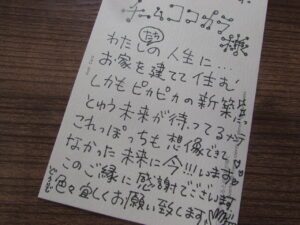 チームココカラ様
わたしたちの人生に…
お家を建てて住む
しかもピカピカの新築
という未来が待ってるって
これっぽっちも想像できて
なかった未来に今!!!います
このご縁に感謝でございます
色々宜しくお願い致します